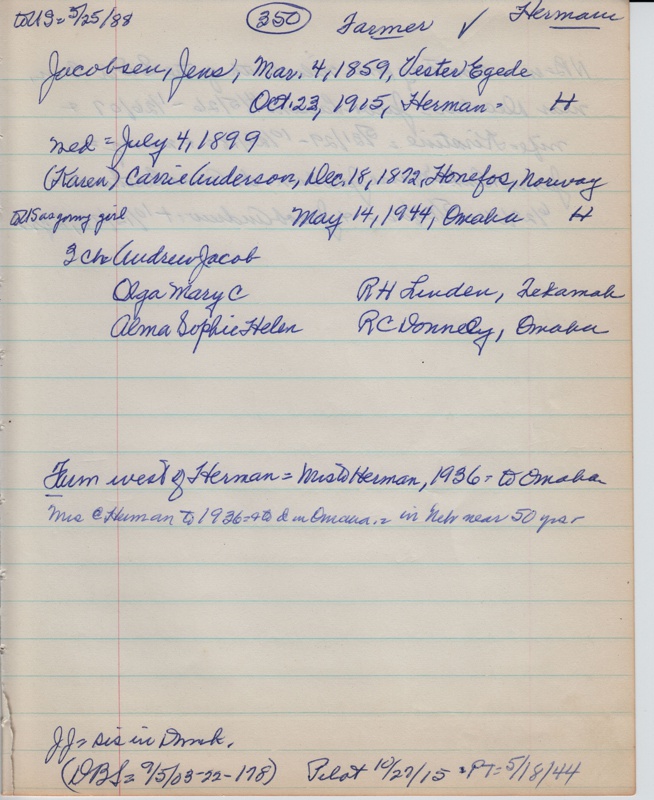 to US = 5/25/88 350 Farmer ✓ Herman
Jacobsen, Jens, Mar. 4, 1859, Vester Egede
Oct. 23, 1915, Herman = H
med = July 4, 1899
(Karen) Carrie Anderson, Dec. 18, 1872, Honefos, Norway
to US as young girl May 14, 1944, Omaha H
3 ch Andrew Jacob
Olga Mary C RH Linden, Tekamah
Alma Sophie Helen RC Donnely, Omaha
Farm west of Herman = Mrs to Herman, 1936 = to Omaha
Mrs C Herman to 1936 = + to d in Omaha = in Nebr near 50 yrs -
JJ = sis in Dmrk.
(DBS = 9/5/03-22-178) Pilot 10/27/15 = PT = 5/18/44